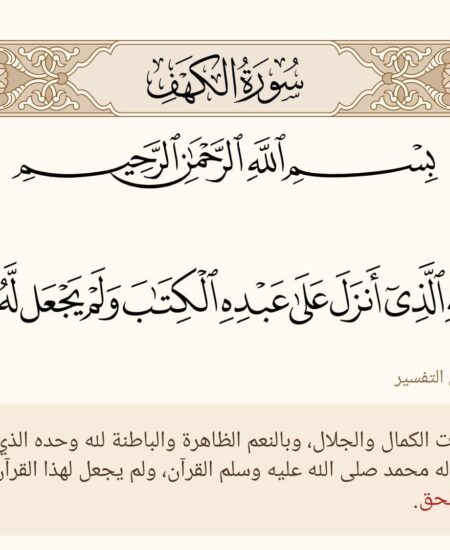 سُورَةُ الكَهۡفِ
بِسۡمِ ٱللَّهِ ٱلرَّحۡمَٰنِ ٱلرَّحِيمِ
ٱلَّذِيٓ أَنزَلَ عَلَىٰ عَبۡدِهِ ٱلۡكِتَٰبَ وَلَمۡ يَجۡعَل لَّهُ
التفسير
ت الكمال والجلال، وبالنعم الظاهرة والباطنة لله وحده الذي
له محمد صلى الله عليه وسلم القرآن، ولم يجعل لهذا القرآن
حق.